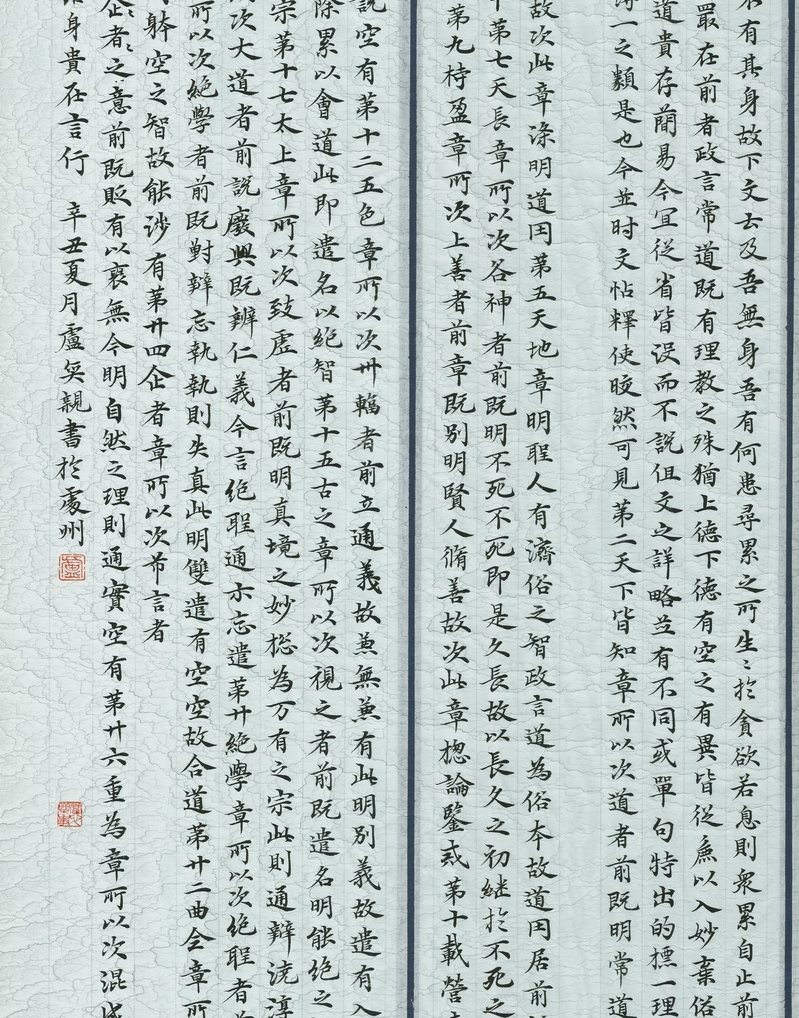 有其身故下文云及吾無身吾有何患尋累之所生〻於貪欲若息則衆累自止前
最在前者政言常道既有理教之殊猶上德下德有空之有異皆從麁以入妙棄俗
道貴存蕳易今宜從省皆没而不說但文之詳略並有不同或單句特出的摽一理
一之纇是也今並时文帖釋使晈然可見第二天下皆知章所以次道者前既明常道
故次此章涤明道因第五天地章明聖人有濟俗之智政言道為俗夲故道因居前
第七天長章所以次谷神者前既明不死不死即是久長故以長久之初継於不死之
第九持盈章所次上善者前章既別明賢人脩善故次此章揔論鑒戒第十載營
說空有第十二五色章所以次卅轂者前立通義故兼無兼有此明別義故遣有入
除累以會道此即遣名以絕智第十五古之章所以次視之者前既遣名明能绝之
宗第十七太上章所以次致虛者前既明真境之妙揔為万有之宗此則通辯澆淳
次大道者前說廢興既辨仁義今言绝聖通亦忘遣第廿絕學章所以次绝聖者前
所以次絕學者前既對辯忘執執則失真此明雙遣有空空故合道第廿二曲全章所
躰空之智故能涉有第廿四企者章所以次希言者
企者〻之意前既貶有以裒無今明自然之理則通實空有第廿六重為章所以次混成
身貴在言行 辛丑夏月盧
親書於處州